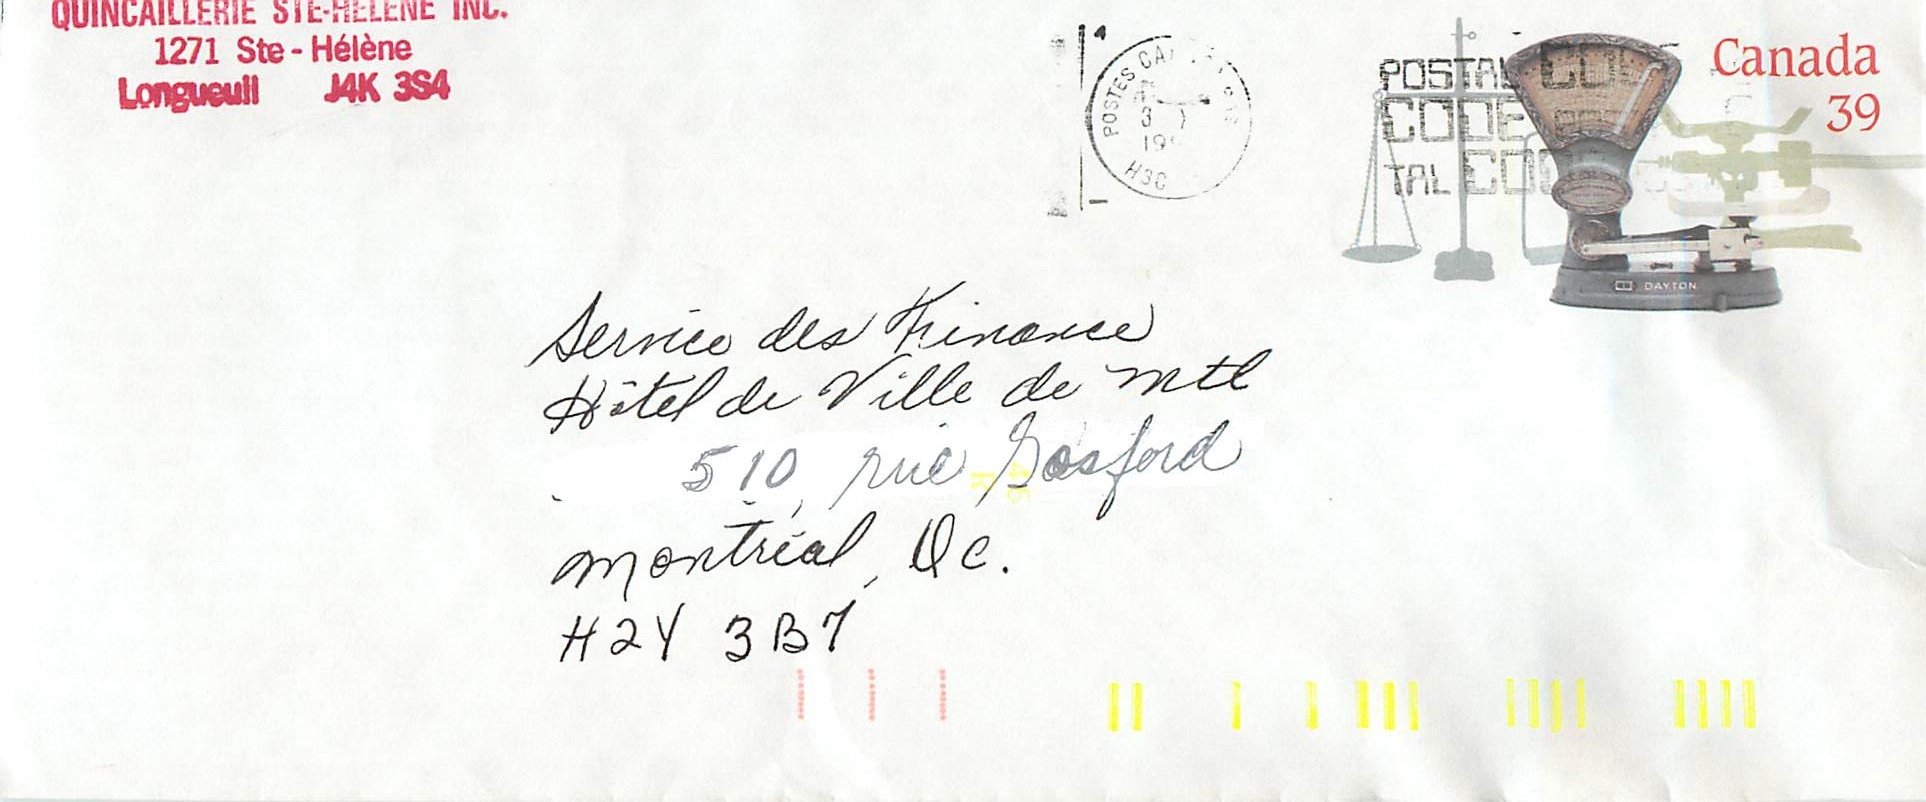 QUINCAILLERIE STE-HÉLÈNE INC.
1271 Ste-Hélène
Longueuil J4K 3S4
POSTES CA
3
19
H3C
POSTAL CODE
CODE
TAL CODE
Canada
39
DAYTON
Service des Finance
Hôtel de Ville de Mtl
510, rue Gosford
46
R
Montréal, Qc.
H2Y 3B7